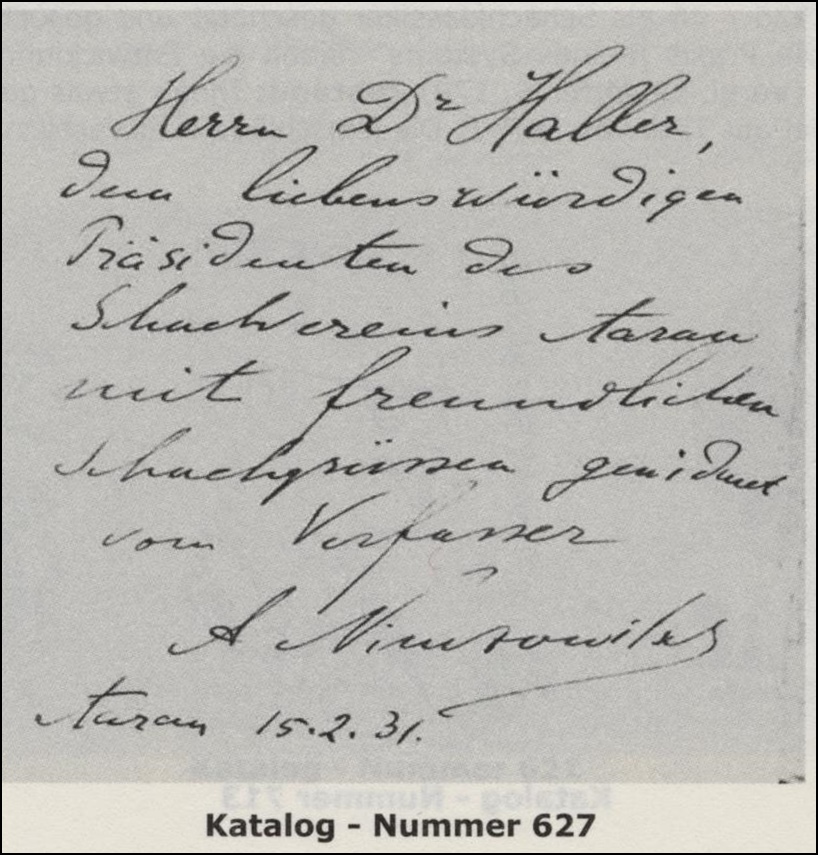 Herrn Dr Haller,
dem liebenswürdigen
Präsidenten des
Schachvereins Aarau
mit freundlichen
Schachgrüssen gewidmet
vom Verfasser
A Nimzowitsch
Aarau 15.2.31.
Katalog - Nummer 627